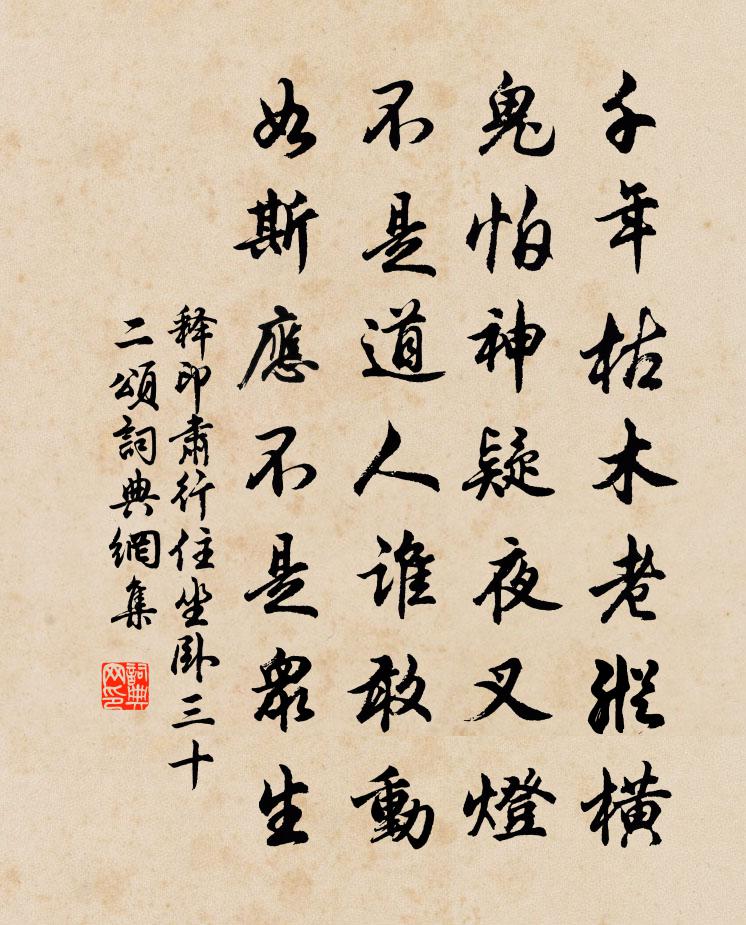 千年枯木老縱橫
鬼怕神疑夜叉燈
不是道人誰敢動
如斯應不是眾生
释印肅行住坐臥三十
二頌詞典網集
詞典
网印